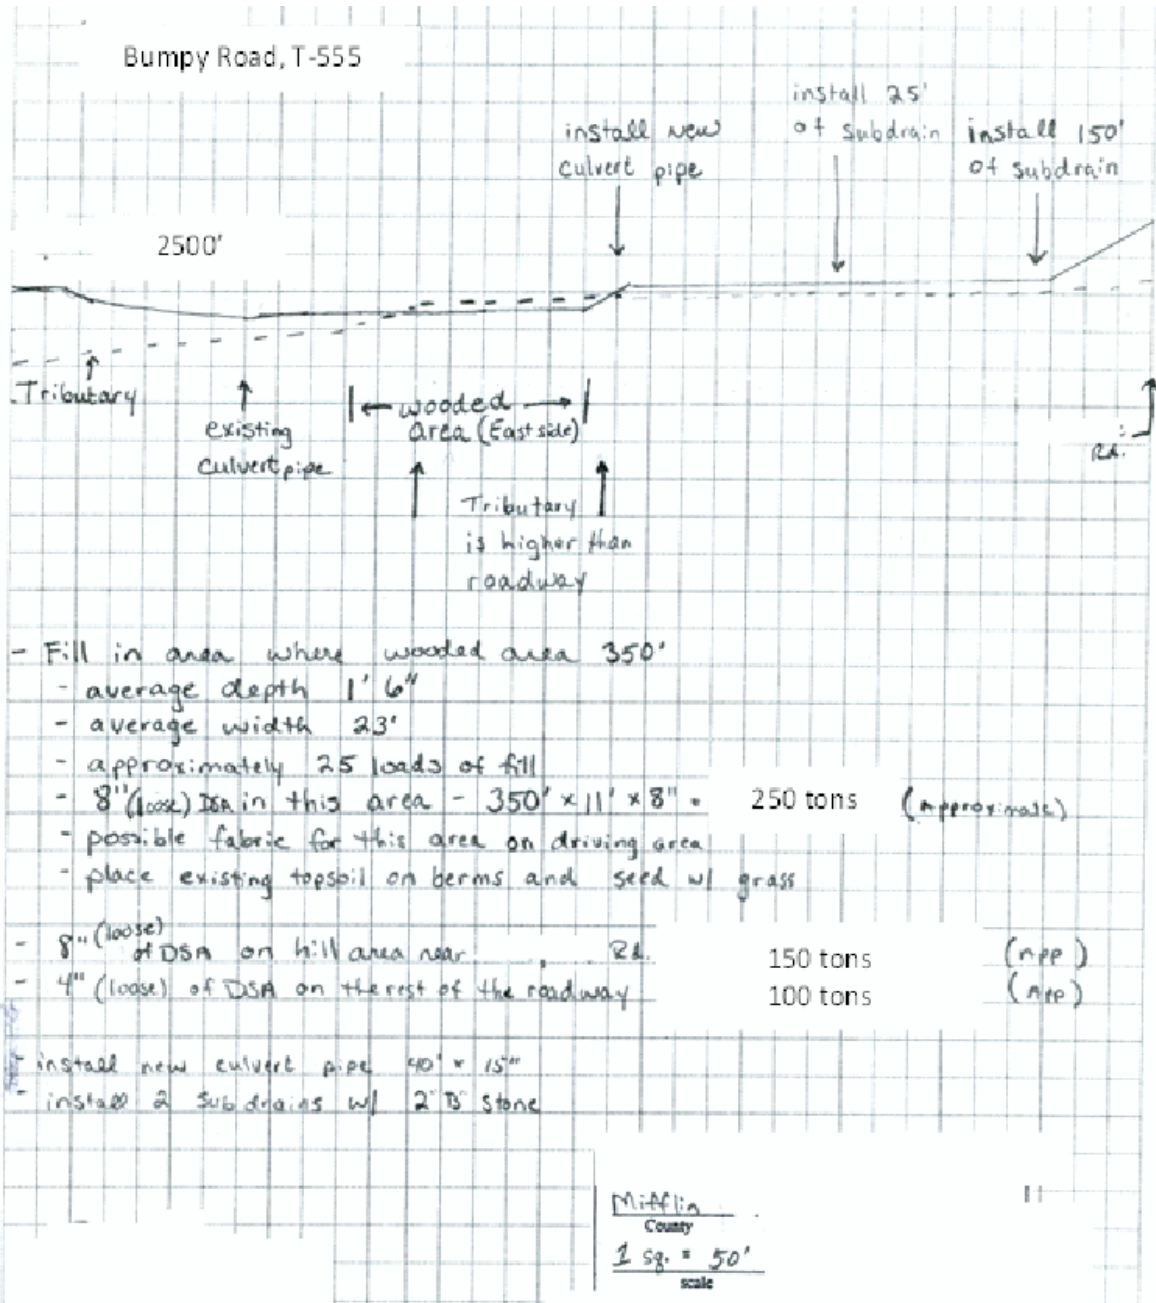 Bumpy Road, T-555
install 25'
of subdrain
install new
culvert pipe
install 150'
of subdrain
2500'
Tributary
existing
culvert pipe
wooded
area (East side)
Rd.
Tributary
is higher than
roadway
- Fill in area where wooded area 350'
- average depth 1' 6"
- average width 23'
- approximately 25 loads of fill
- 8" (loose) DSA in this area - 350' x 11' x 8" = 250 tons (Approximate)
- possible fabric for this area on driving area
- place existing topsoil on berms and seed w/ grass
- 8" (loose) of DSA on hill area near Rd. 150 tons (App)
- 4" (loose) of DSA on the rest of the roadway 100 tons (App)
- install new culvert pipe 40' x 15"
- install 2 subdrains w/ 2"B" stone
Mifflin
County
1 sq. = 50'
scale